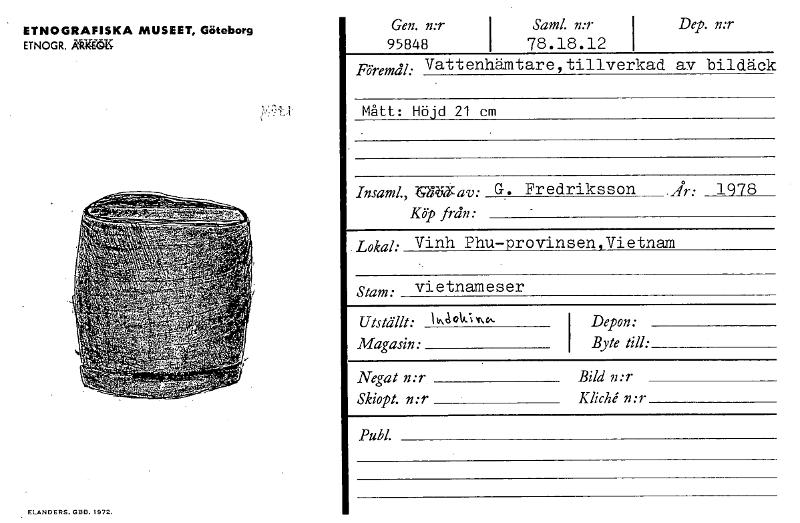 ETNOGRAFISKA MUSEET, Göteborg
ETNOGR. ARKEOL.
Gen. n:r
95848
Saml. n:r
78.18.12
Dep. n:r
Föremål: Vattenhämtare,tillverkad av bildäck
Mått: Höjd 21 cm
Insaml., Gåva av: G. Fredriksson År: 1978
Köp från:
Lokal: Vinh Phu-provinsen,Vietnam
Stam: vietnameser
Utställt: Indokina
Depon:
Magasin:
Byte till:
Negat n:r
Bild n:r
Skiopt. n:r
Kliché n:r
Publ.
ELANDERS, GBG. 1972.